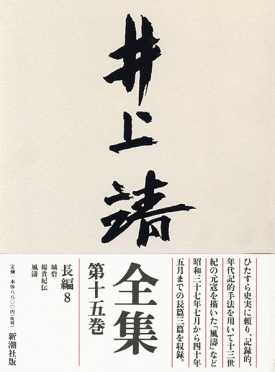 井上靖
全集
第十五巻
長編8
城砦
楊貴妃伝
風濤
ひたすら史実に頼り、記録的、
年代記的手法を用いて十三世
紀の元寇を描いた「風濤」など
昭和三十七年七月から四十年
五月までの長篇三篇を収録。
新潮社版